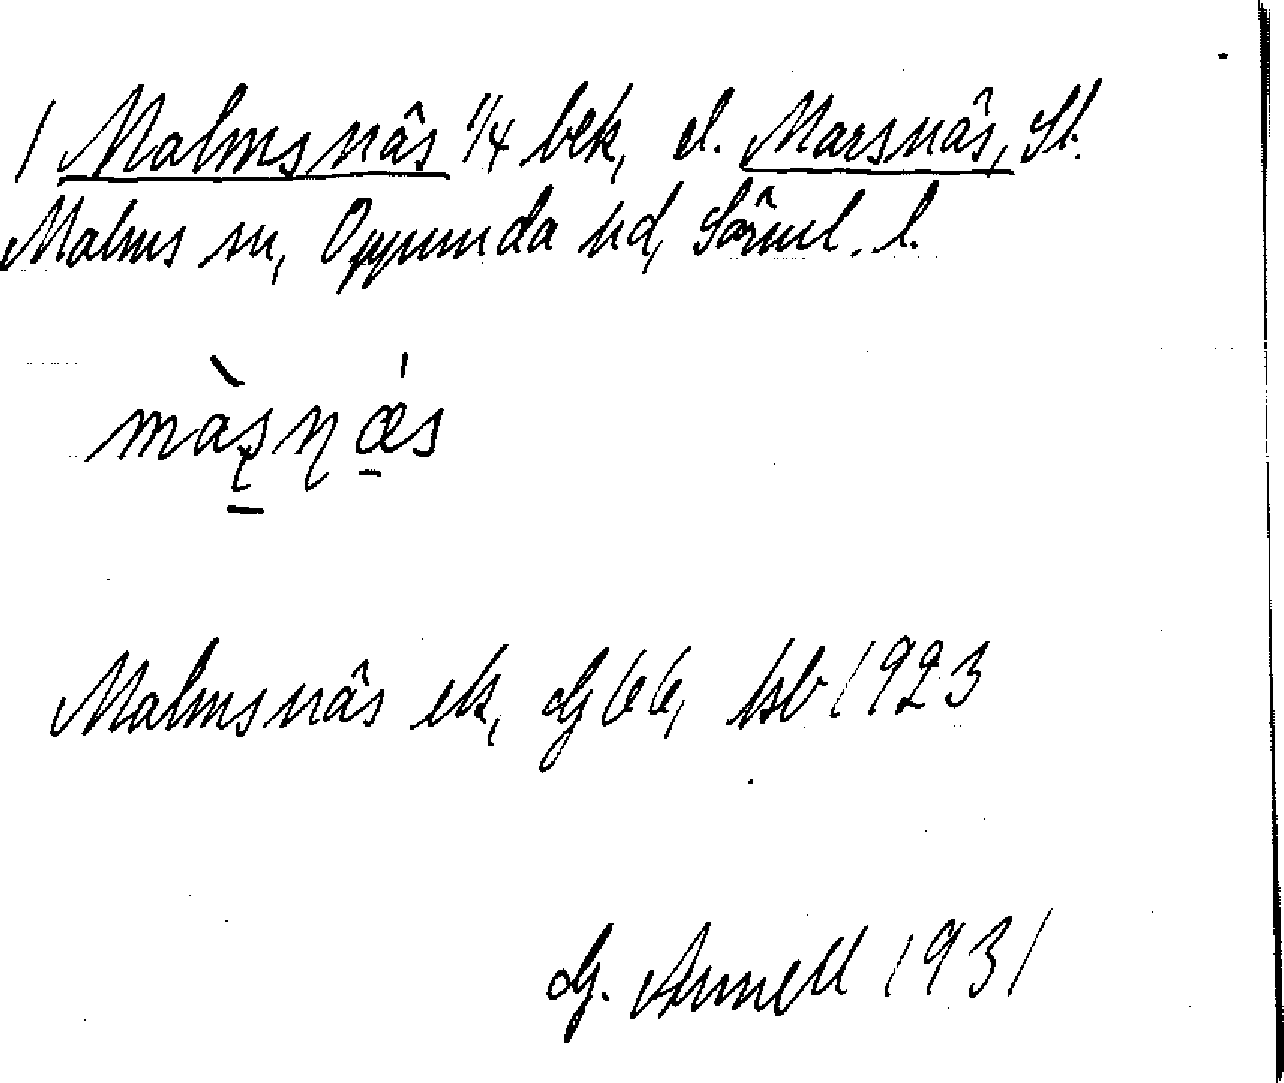 1 Malmsnäs 1/4 bek, el. Marsnäs, St.
Malms sn, Oppunda hd, Sörml. l.
màʂɳǽs
Malmsnäs ek, G 66, ksb 1923
G. Annell 1931